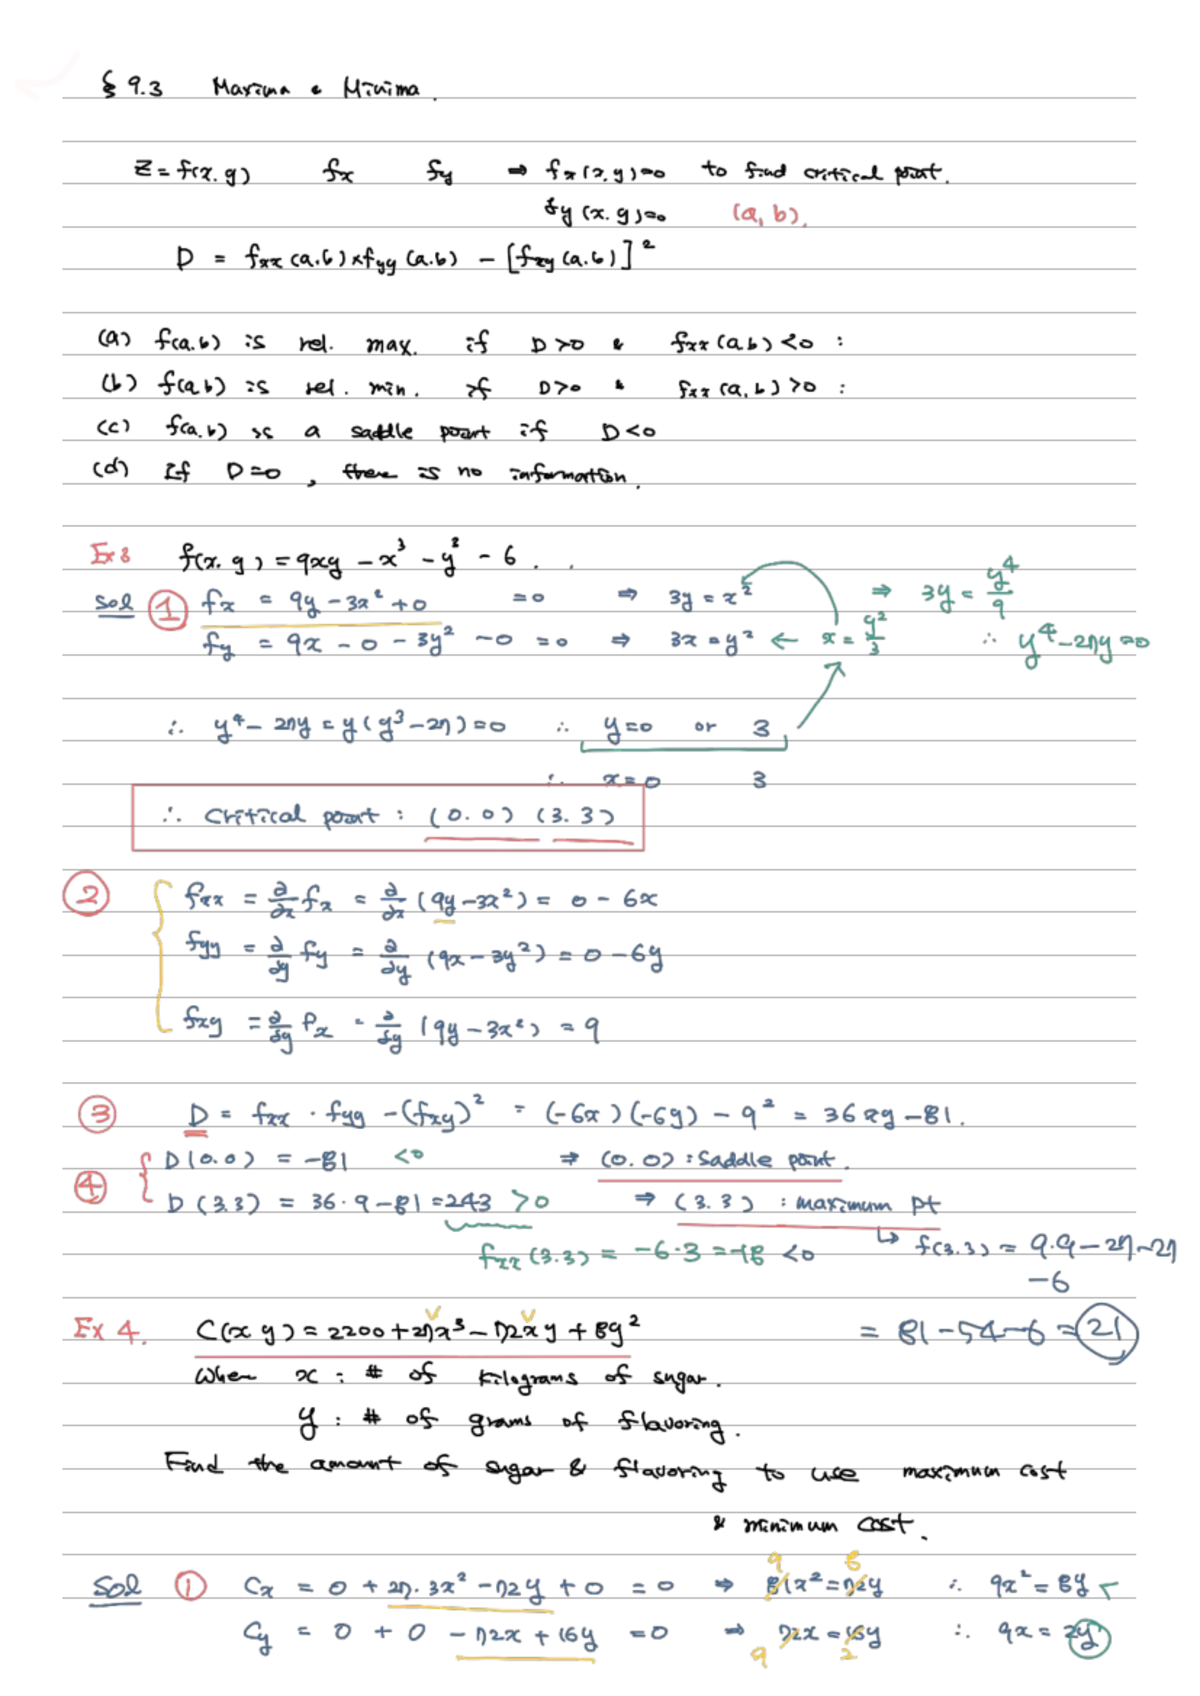 § 9.3 Maxima & Minima.
Z = f(x, y) fx fy ⇒ fx(x, y)=0 to find critical point.
fy(x, y)=0 (a, b),
D = fxx(a,b)×fyy(a,b) − [fxy(a,b)]²
(a) f(a,b) is rel. max. if D>0 & fxx(a,b)<0 :
(b) f(a,b) is rel. min. if D>0 & fxx(a,b)>0 :
(c) f(a,b) is a saddle point if D<0
(d) If D=0, there is no information.
Ex 3 f(x, y) = 9xy − x³ − y³ − 6 . .
Sol ① fx = 9y − 3x² + 0 = 0 ⇒ 3y = x² ⇒ 3y = y⁴/9
fy = 9x − 0 − 3y² − 0 = 0 ⇒ 3x = y² ← x = y²/3 ∴ y⁴−27y=0
∴ y⁴ − 27y = y(y³−27) = 0 ∴ y=0 or 3
∴ x=0 3
∴ Critical point : (0.0) (3.3)
② fxx = ∂/∂x fx = ∂/∂x (9y−3x²) = 0 − 6x
fyy = ∂/∂y fy = ∂/∂y (9x−3y²) = 0 − 6y
fxy = ∂/∂y fx = ∂/∂y (9y−3x²) = 9
③ D = fxx · fyy − (fxy)² = (−6x)(−6y) − 9² = 36xy − 81.
④ D(0.0) = −81 <0 ⇒ (0.0) : Saddle point.
D(3.3) = 36·9−81 = 243 >0 ⇒ (3.3) : maximum pt
fxx(3.3) = −6·3 = −18 <0 ↳ f(3.3) = 9.9−27−27
−6
Ex 4. C(x y) = 2200 + 27x³ − 72xy + 8y² = 81−54−6 = 21
When x : # of kilograms of sugar.
y : # of grams of flavoring.
Find the amount of sugar & flavoring to use maximum cost
& minimum cost.
9 8
Sol ① Cx = 0 + 27·3x² − 72y + 0 = 0 ⇒ 81x² = 72y ∴ 9x² = 8y
Cy = 0 + 0 − 72x + 16y = 0 ⇒ 72x = 16y ∴ 9x = 2y
9 2